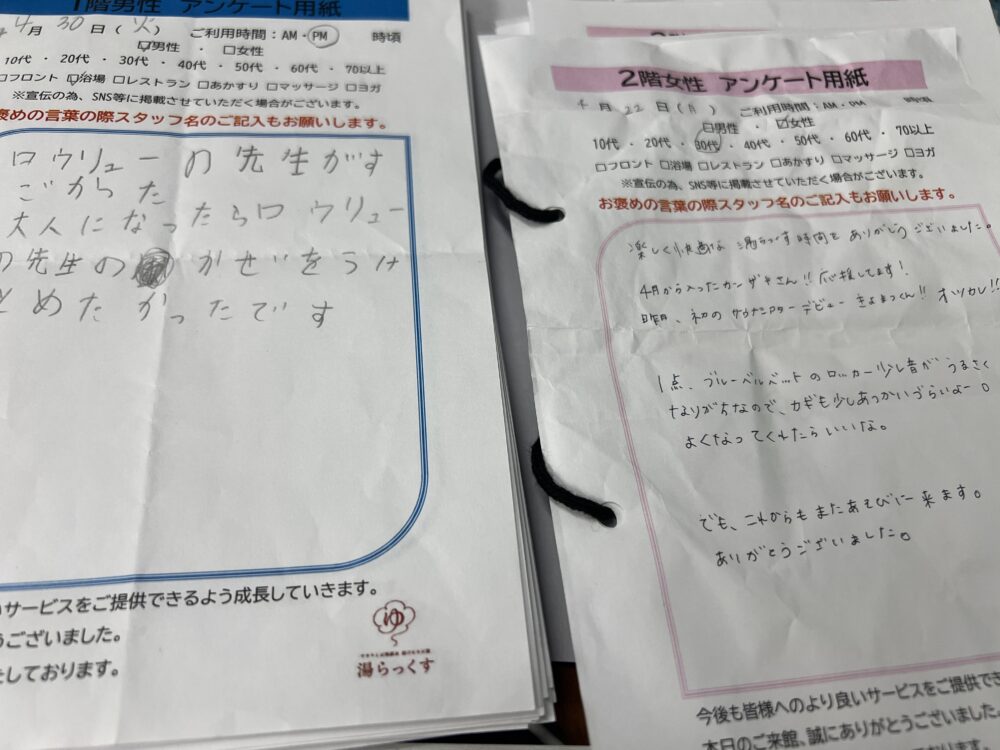 1階男性 アンケート用紙
4月30日(火) ご利用時間:AM・PM 時頃
☑男性 ・ □女性
10代 ・ 20代 ・ 30代 ・ 40代 ・ 50代 ・ 60代 ・ 70以上
□フロント ☑浴場 □レストラン □あかすり □マッサージ □ヨガ
※宣伝の為、SNS等に掲載させていただく場合がございます。
褒めの言葉の際スタッフ名のご記入もお願いします。
ロウリューの先生がす
ごかった
大人になったらロウリュー
の先生の かせいをうけ
とめたかったです
いサービスをご提供できるよう成長していきます。
うございました。
たしております。
ゆ
湯らっくす
2階女性 アンケート用紙
4月22日(月) ご利用時間:AM・PM 時頃
□男性 ・ ☑女性
10代 ・ 20代 ・ 30代 ・ 40代 ・ 50代 ・ 60代 ・ 70以上
□フロント □浴場 □レストラン □あかすり □マッサージ □ヨガ
※宣伝の為、SNS等に掲載させていただく場合がございます。
お褒めの言葉の際スタッフ名のご記入もお願いします。
楽しく快適な湯らっくす時間をありがとうございました。
4月から入ったカンザキさん!! 応援してます!
昨日、初のサウナシアターデビュー きよまつくん!! オツカレ!!
1点、ブルーベルベットのロッカー少し音がうるさく
なりがちなので、カギも少しあつかいづらいよー。
よくなってくれたらいいな。
でも、これからもまたあそびに来ます。
ありがとうございました。
今後も皆様へのより良いサービスをご提供でき
本日のご来館、誠にありがとうございました。